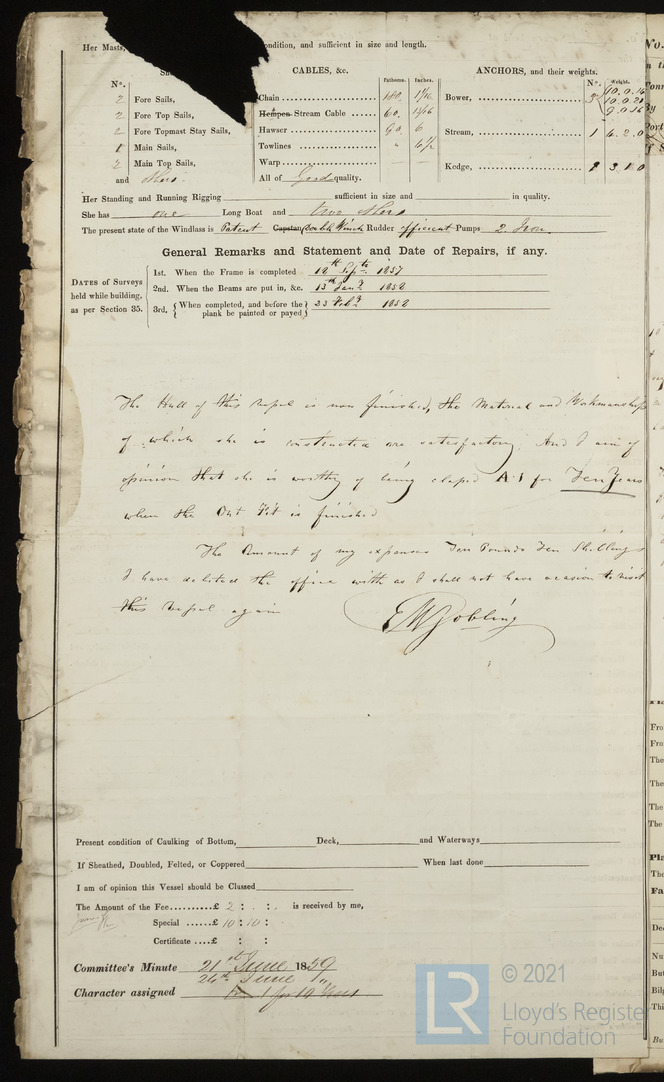 Her Masts, ondition, and sufficient in size and length.
CABLES, &c. Fathoms. Inches. ANCHORS, and their weights.
No. No. Weight.
2 Fore Sails, Chain 180 1 7/16 Bower, 3 10.0.16
10.0.20
9.0.16
2 Fore Top Sails, Hempen Stream Cable 60 13/16
2 Fore Topmast Stay Sails, Hawser 90 6 Stream, 1 4.2.0
1 Main Sails, Towlines " 4 1/2
2 Main Top Sails, Warp Kedge, 1 3.1.0
and others All of Good quality.
Her Standing and Running Rigging sufficient in size and in quality.
She has one Long Boat and two others
The present state of the Windlass is Patent Capstan double Winch Rudder efficient Pumps 2 Iron
General Remarks and Statement and Date of Repairs, if any.
DATES of Surveys held while building, as per Section 35.
1st. When the Frame is completed 18th Sepr. 1857
2nd. When the Beams are put in, &c. 13th Jany 1858
3rd. When completed, and before the plank be painted or payed 23 Feby 1858
The Hull of this vessel is now finished, the Material and Workmanship
of which she is constructed are satisfactory. And I am of
opinion that she is worthy of being classed A.1 for Ten Years
when the Out Fit is finished
The Amount of my expenses Ten Pounds Ten Shillings
I have debited the office with as I shall not have occasion to visit
this vessel again
E W Gobling
Present condition of Caulking of Bottom, Deck, and Waterways
If Sheathed, Doubled, Felted, or Coppered When last done
I am of opinion this Vessel should be Classed
The Amount of the Fee £ 2 : : is received by me,
Special £ 10 : 10 :
Certificate £ : :
Committee's Minute 21st June 1859
24th June
Character assigned A 1 for 10 Years
LR © 2021
Lloyd's Registe
Foundation